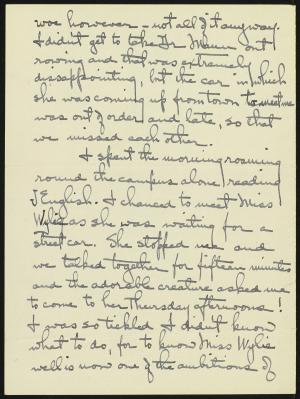 woe however - not all of it anyway.
I didn't get to take Dr. Mann out
rowing and that was extremely
dissappointing, but the car in which
she was coming up from town to meet me
was out of order and late, so that
we missed each other.
I spent the morning roaming
round the campus alone, reading
English. I chanced to meet Miss
Wylie as she was waiting for a
street car. She stopped me and
we talked together for fifteen minutes
and the adorable creature asked me
to come to her Thursday afternoons!
I was so tickled I didn't know
what to do, for to know Miss Wylie
well is now one of the ambitions of